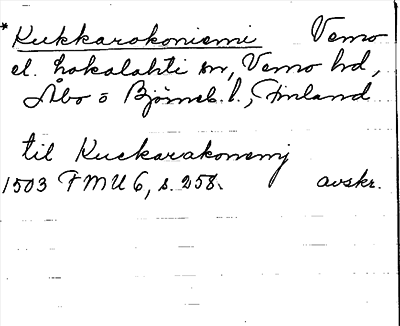 * Kukkarokoniemi Vemo
el. Lokalahti sn, Vemo hd,
Åbo o Björneb. l., Finland
til Kuckarakonemj
1503 FMU 6, s. 258. avskr.